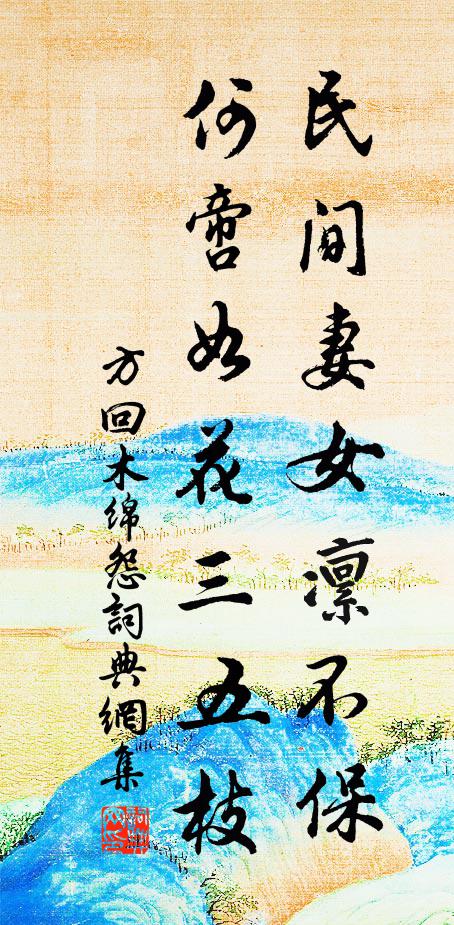 民間妻女凛不保
何啻如花三五枝
方回木綿怨詞典網集